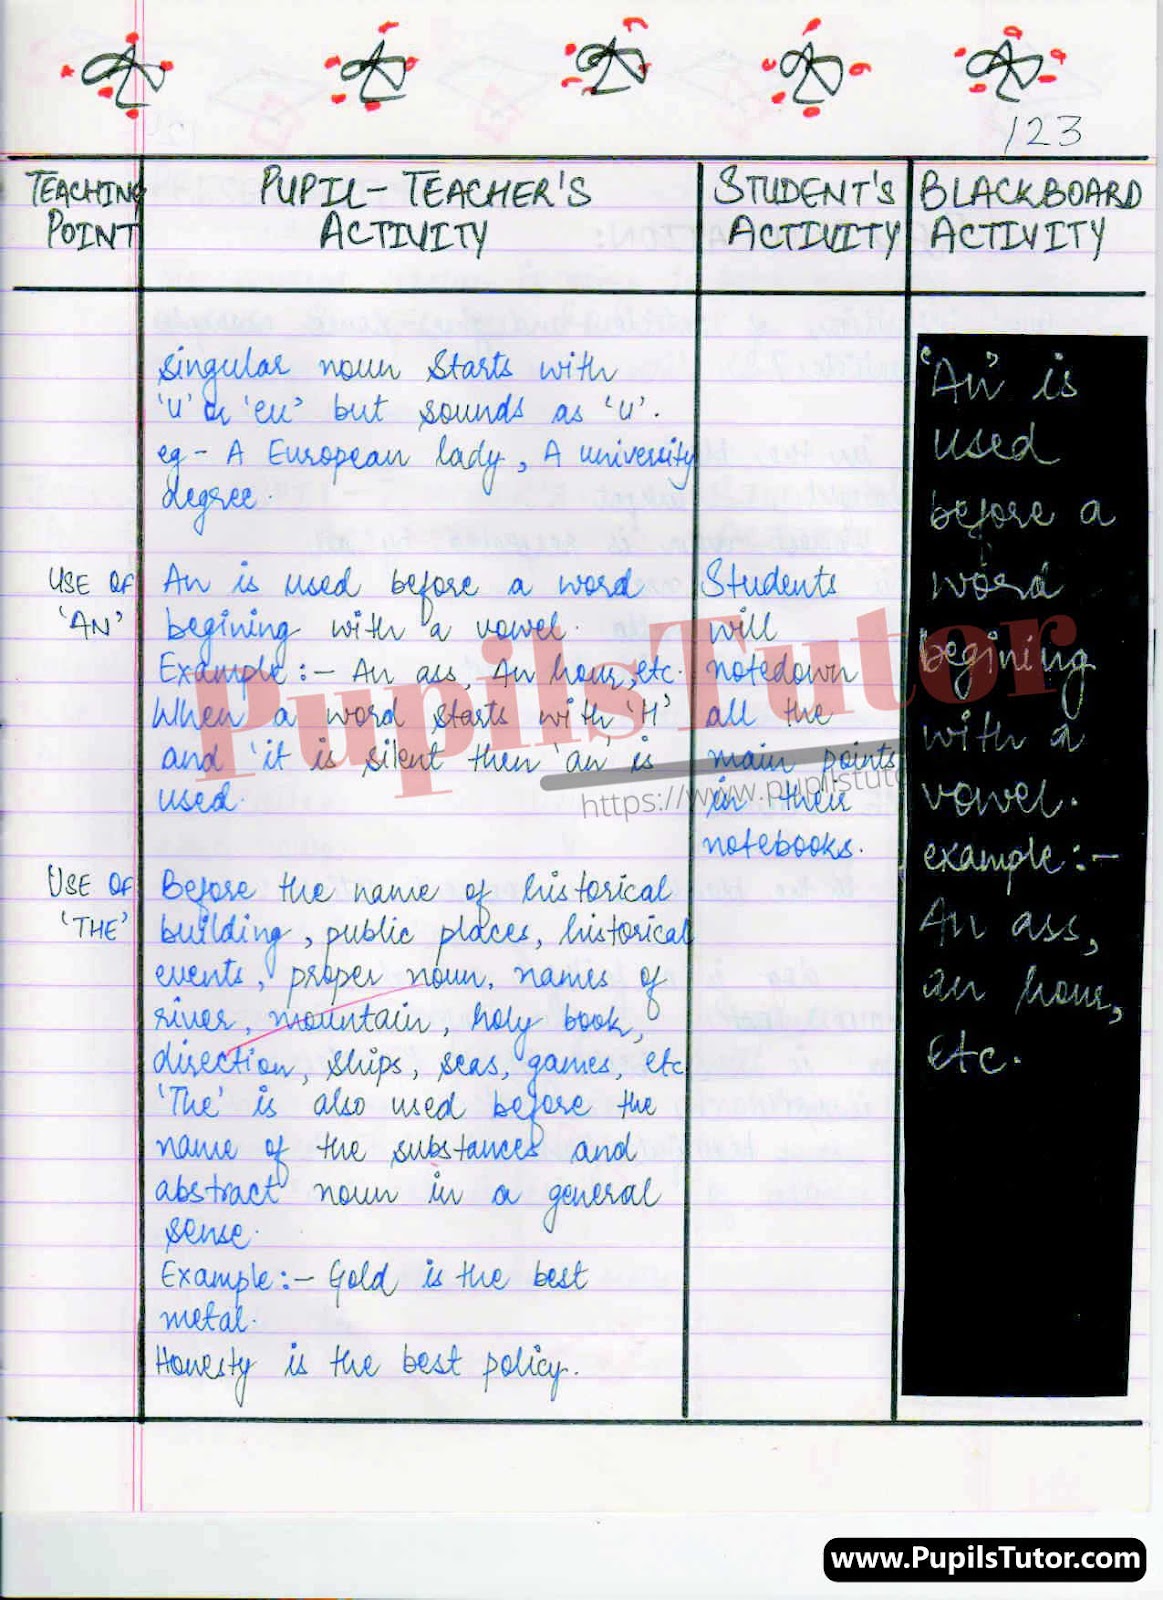 123
TEACHING POINT
PUPIL-TEACHER'S ACTIVITY
STUDENT'S ACTIVITY
BLACKBOARD ACTIVITY
singular noun starts with
'u' or 'eu' but sounds as 'u'.
eg - A European lady, A university
degree.
USE OF
'AN'
An is used before a word
begining with a vowel.
Example :- An ass, An hour, etc.
When a word starts with 'H'
and 'it is silent then 'an' is
used.
Students
will
notedown
all the
main points
in their
notebooks.
USE OF
'THE'
Before the name of historical
building, public places, historical
events, proper noun, names of
river, mountain, holy book,
direction, ships, seas, games, etc
'The' is also used before the
name of the substances and
abstract noun in a general
sense.
Example :- Gold is the best
metal.
Honesty is the best policy.
'An' is
used
before a
word
begining
with a
vowel.
example :-
An ass,
an hour,
etc.
PupilsTutor
https://www.pupilstutor
www.PupilsTutor.com